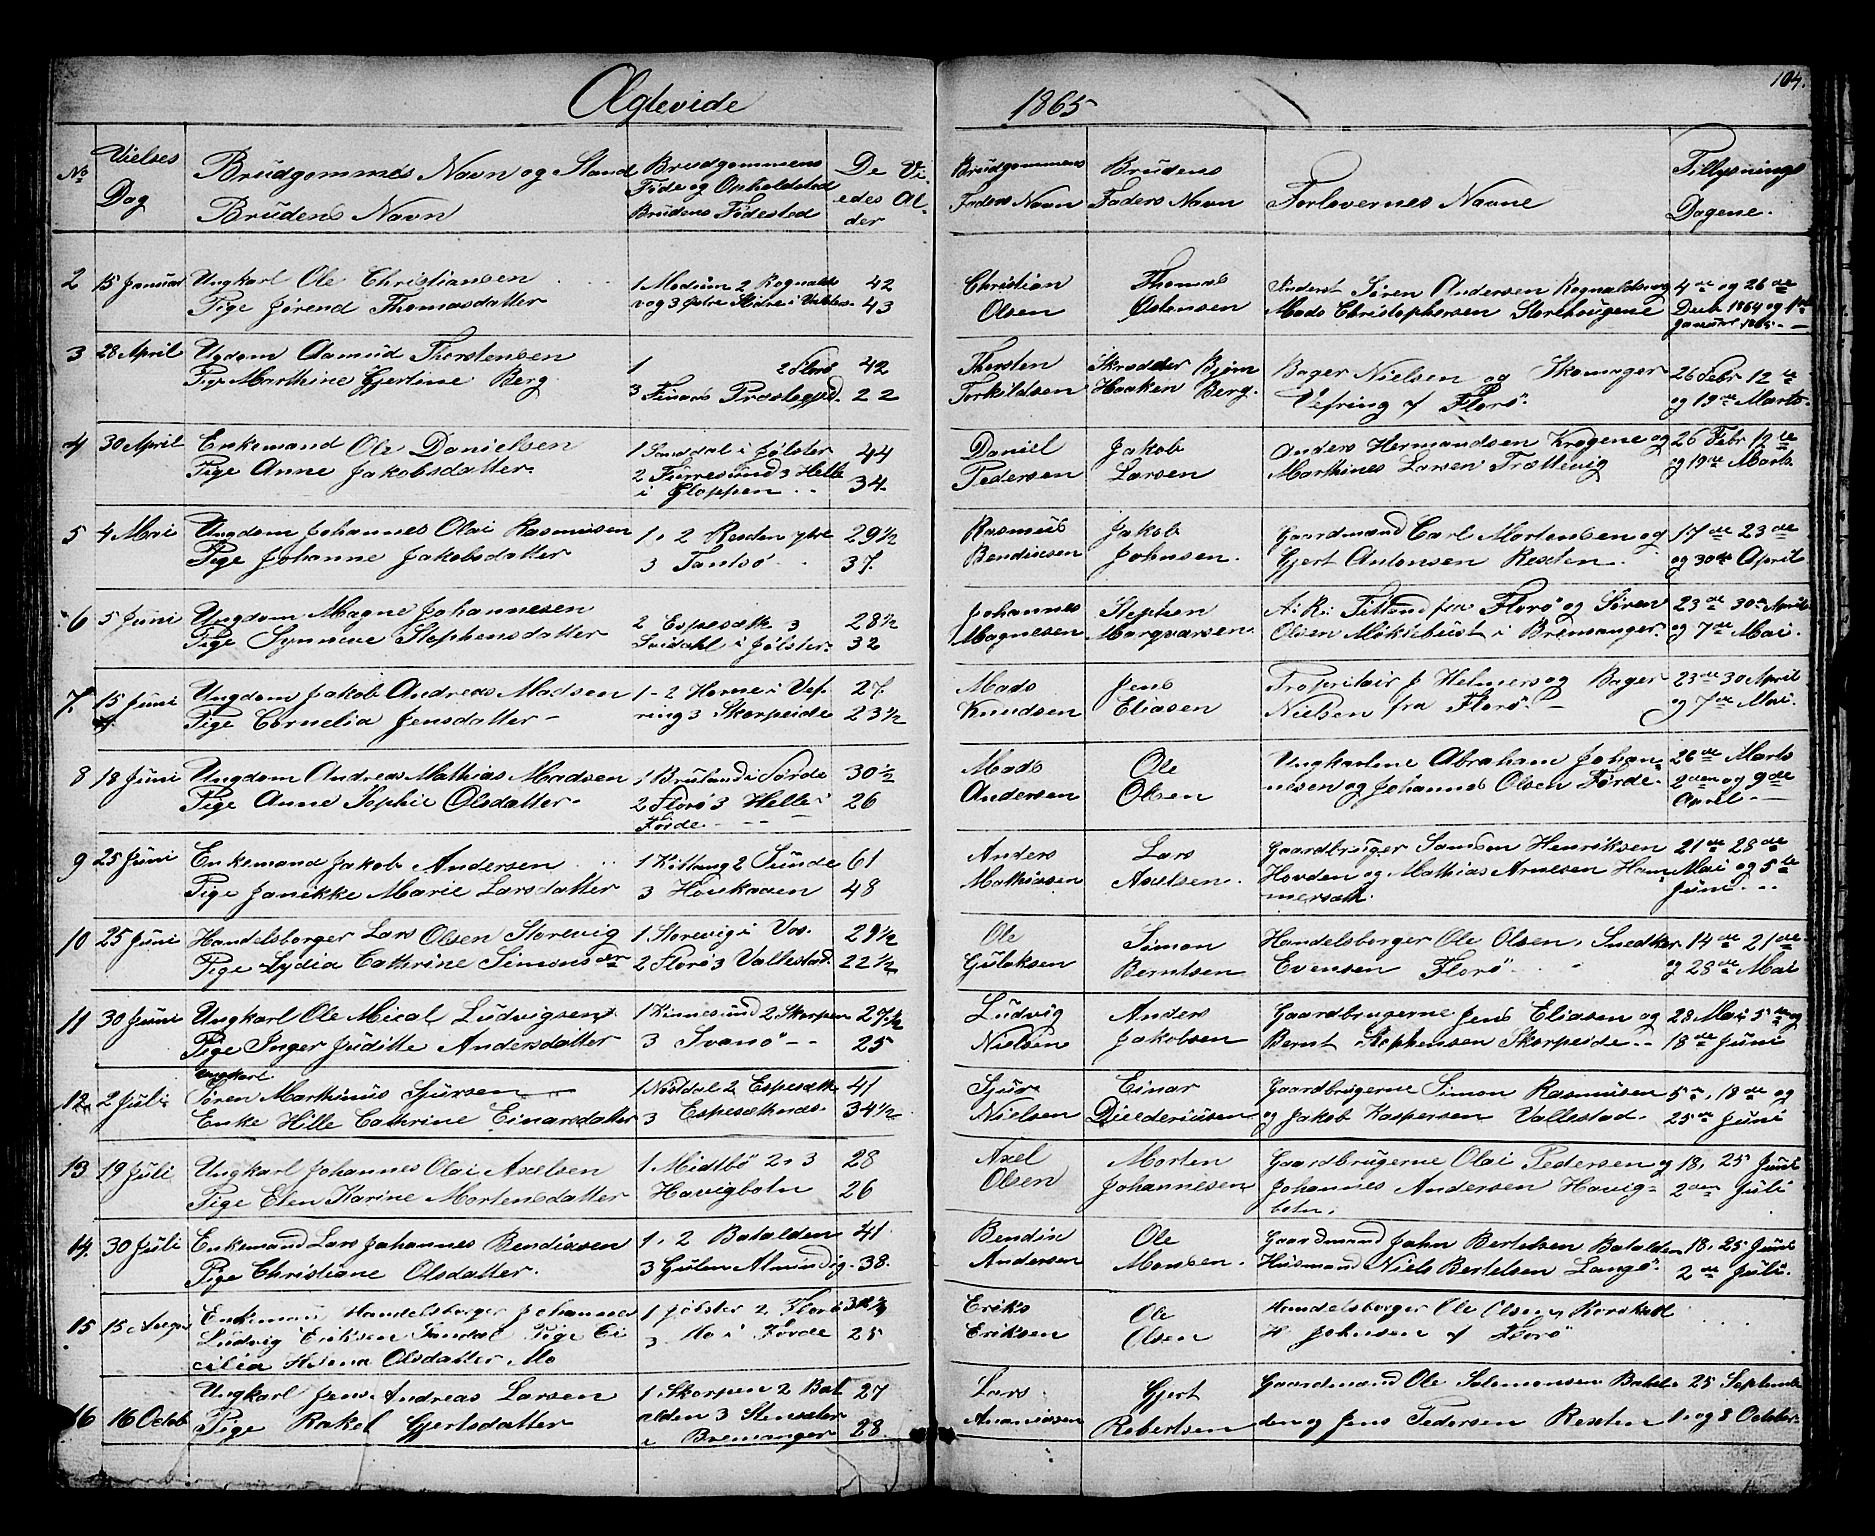 104.
Ægtevide 1865
No Vielses Dag
Brudgommes Navn og Stand
Brudens Navn
Brudgommens
Føde og Opholdsted
Brudens Fødested
De Vi-
edes Al-
der
Brudgommens
Faders Navn
Brudens
Faders Navn
Forlovernes Navne
Tillysnings
Dagene.
2 15 Januar Ungkarl Ole Christiansen
Pige Jørend Thomasdatter
42
43
Christian
Olsen
Thomas
Østensen
Søren Andersen
Mads Christophersen Storehougene
4de og 26de
Decb 1864 og 1ste
Januar 1865
3 28 April Ungdom Aamud Thorstensen
Pige Marthine Gjertine Berg
1 2 Florø 42
3 Finaas Præstegjd. 22
Thorsten
Torkildsen
Skrædder Bjørn
Haaken Berg.
Bager Nielsen og Skomager
Vefring af Florø
26 Febr 12te
og 19de Marts.
4 30 April Enkemand Ole Danielsen
Pige Anne Jakobsdatter
1 Sanddal i Jølster 44
2 Furresund 3 Helle
i Gloppen 34
Daniel
Pedersen
Jakob
Larsen
Anders Hermandsen Krogene og
Marthines Larsen Trættevig
26 Febr 12te
og 19de Marts
5 4 Mai Ungdom Johannes Olai Rasmusen
Pige Johanne Jakobsdatter
1, 2 Resten ytre 29½
3 Tansø 37.
Rasmus
Bendixen
Jakob
Johnsen.
Gaardmand Carl Mortensen og
Gjert Antonsen Resten
17de 23de
og 30de April
6 5 Juni Ungdom Magne Johannesen
Pige Synneve Stephensdatter
2 Espesæth 3 28½
i Jølster 32
Johannes
Magnesen
Stephen
Marqvarsen.
A: R: Titland fra Florø og Søren
Olsen Møklebust i Bremanger.
23de 30te April
og 7de Mai.
7. 15 Juni Ungdom Jakob Andreas Madsen
Pige Cornelia Jensdatter
1-2 Horne i Vef- 27.
ring 3 Skorpeide 23½
Mads
Knudsen
Jens
Eliasen
Propritair J Helmers og Bager
Nielsen fra Florø.
23de 30 April
og 7de Mai.
8 18 Juni Ungdom Andreas Mathias Madsen
Pige Anne Sophie Olsdatter
1 Bruland i Førde 30½
2 Florø 3 Helle i 26
Førde
Mads
Andersen
Ole
Olsen
Ungkarlene Abraham Johan-
nesen og Johannes Olsen Førde.
26de Marts
2den og 9de
April
9 25 Juni Enkemand Jakob Andersen
Pige Janikke Marie Larsdatter
1 Kittang 2 Sunde 61
3 Høukaaen 48
Anders
Mathissen
Lars
Axelsen.
Gaardbruger Samson Henriksen
Hovden og Mathias Arnesen Ham-
mersæth.
21de 28de
Mai og 5te
Juni
10 25 Juni Handelsborger Lars Olsen Storevig
Pige Lydia Cathrine Simonsdr
1 Storevig i Vos. 29½
2 Florø 3 Vallestad. 22½
Ole
Guloksen
Simon
Berntsen
Handelsborger Ole Olsen, Snedker
Evensen Florø
14de 21de
og 28de Mai
11 30 Juni Ungkarl Ole Mical Ludvigsen
Pige Inger Juditte Andersdatter
1 Kinnesund 2 Skorpen 27½
3 Svanø 25
Ludvig
Nielsen
Anders
Jakobsen
Gaardbrugerne Jens Eliasen og
Bernt Stephensen Skorpeide
28 Mai 5te og
18de Juni
12 2 Juli Ungkarl
Søren Marthinus Sjursen
Enke Hille Cathrine Einarsdatter
1 Nordal 2 Espesæth 41
3 Espesæthnæs. 34½
Sjur
Nielsen
Einar
Diederichsen
Gaardbrugerne Simon Rasmusen
og Jakob Kaspersen Vallestad.
5te, 18de og
25de Juni
13 19 Juli Ungkarl Johannes Olai Axelsen
Pige Elen Karine Mortensdatter
1 Midtbø 2, 3 28
Havigbotn 26
Axel
Olsen
Morten
Johannesen
Gaardbrugerne Olai Pedersen og
Johannes Andersen Havig-
botn.
18, 25 Juni
2den Juli
14. 30 Juli Enkemand Lars Johannes Bendixsen
Pige Christiane Olsdatter.
1, 2 Batalden 41
3 Gulen Almindig. 38.
Bendix
Andersen
Ole
Monsen.
Gaardmand John Bertelsen Batalden
Husmand Niels Bertelsen Langø
18, 25 Juni
2de Juli.
15 15 August Enkemand Handelsborger Johannes
Ludvig Eriksen Sandal Pige Ci
cilia Helena Olsdatter Mo
1 Jølster 2 Florø
3 Mo i Førde 25
Eriks
Eriksen
Ole
Olsen
Handelsborger Ole Olsen,
H Johnsen af Florø
16 16 Octob Ungkarl Jens Andreas Larsen
Pige Rakel Gjertsdatter
1 Skorpen 2 Bat 27
alden 3 Stensæter
i Bremanger 28
Lars
Ananiassen
Gjert
Robertsen
Gaardmand Ole Salomonsen Batal-
den og Jens Pedersen Resten
25 September
1. og 8 October